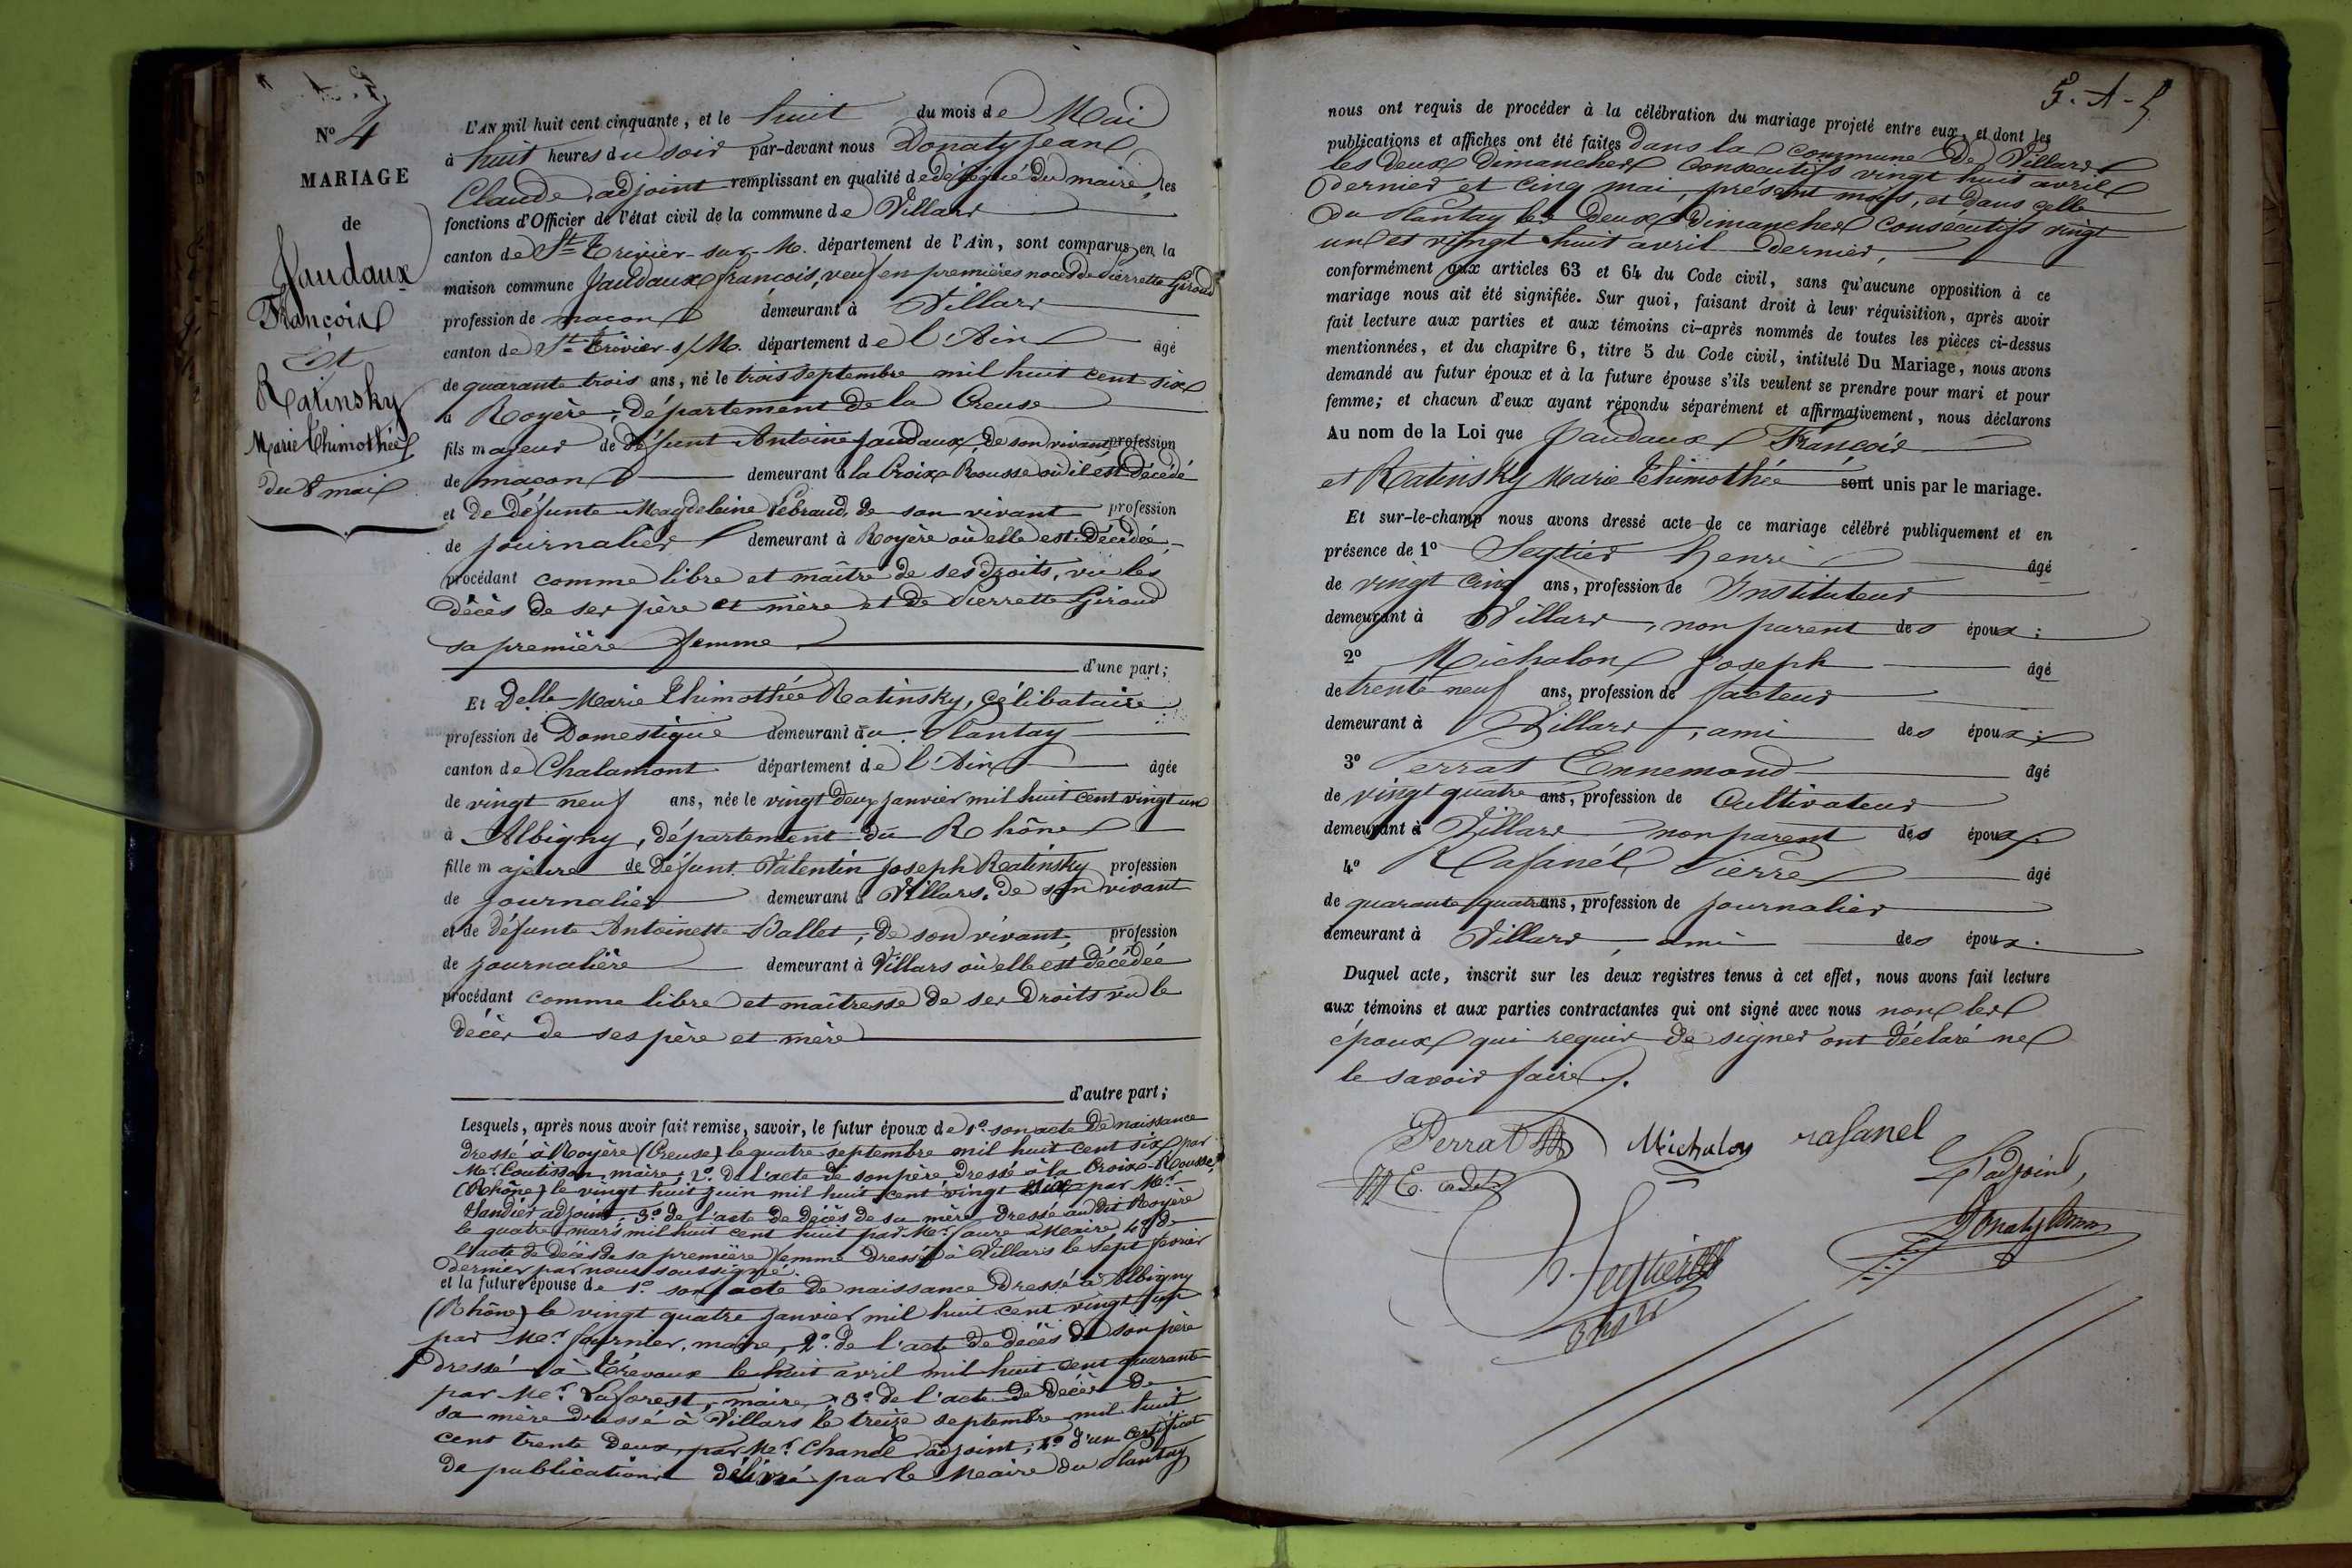 Nº 4
MARIAGE
de
Jaudaux
François
Et
Ratinsky
Marie Thimothée
du 8 mai
L'AN mil huit cent cinquante, et le huit du mois de Mai
à huit heures du soir par-devant nous Donaty Jean
Claude, adjoint remplissant en qualité de délégué du maire, les
fonctions d'Officier de l'état civil de la commune de Villars
canton de St Trivier-sur-M. département de l'Ain, sont comparus en la
maison commune Jaudaux françois, veuf en premières noces de Pierrette Giroud
profession de maçon demeurant à Villars
canton de St Trivier s/M. département de l'Ain âgé
de quarante trois ans, né le trois septembre mil huit cent six
à Royère, département de la Creuse
fils majeur de défunt Antoine Jaudaux, de son vivant profession
de maçon demeurant à la Croix Rousse où il est décédé
et de défunte Magdeleine Lebraud, de son vivant profession
de journalier demeurant à Royère où elle est décédée
procédant comme libre et maître de ses droits, vu les
décès de ses père et mère et de Pierrette Giroud
sa première femme
d'une part;
Et Delle Marie Thimothée Ratinsky, célibataire
profession de Domestique demeurant au Plantay
canton de Chalamont département de l'Ain âgée
de vingt neuf ans, née le vingt deux janvier mil huit cent vingt un
à Albigny, département du Rhône
fille majeure de défunt Valentin Joseph Ratinsky profession
de journalier demeurant à Villars, de son vivant
et de défunte Antoinette Ballet, de son vivant, profession
de journalière demeurant à Villars où elle est décédée
procédant comme libre et maîtresse de ses droits vu le
décès de ses père et mère
d'autre part;
Lesquels, après nous avoir fait remise, savoir, le futur époux de 1º son acte de naissance
dressé à Royère (Creuse) le quatre septembre mil huit cent six par
Mr. Coutisson, maire; 2º de l'acte de son père dressé à la Croix-Rousse
(Rhône) le vingt huit juin mil huit cent vingt six par Mr.
adjoint; 3º de l'acte de décès de sa mère dressé au dit Royère
le quatre mars mil huit cent huit par Mr. faure Maire 4º de
l'acte de décès de sa première femme dressé à Villars le sept fevrier
dernier par nous soussigné.
et la future épouse de 1º son acte de naissance dressé à Albigny
(Rhône) le vingt quatre janvier mil huit cent vingt un
par Mr. fournier, maire, 2º de l'acte de décès de son père
dressé à Trévoux le huit avril mil huit cent quarante
par Mr. Laforest, maire, 3º de l'acte de décès de
sa mère dressé à Villars le treize septembre mil huit
cent trente deux, par Mr. Chanel adjoint; 4º d'un certificat
de publications délivré par le Maire du Plantay
nous ont requis de procéder à la célébration du mariage projeté entre eux, et dont les
publications et affiches ont été faites dans la commune de Villars
les deux Dimanches consécutifs vingt huit avril
dernier et cinq mai, présent mois, et dans celle
du Plantay les deux Dimanches consécutifs vingt
un et vingt huit avril dernier,
conformément aux articles 63 et 64 du Code civil, sans qu'aucune opposition à ce
mariage nous ait été signifiée. Sur quoi, faisant droit à leur réquisition, après avoir
fait lecture aux parties et aux témoins ci-après nommés de toutes les pièces ci-dessus
mentionnées, et du chapitre 6, titre 5 du Code civil, intitulé Du Mariage, nous avons
demandé au futur époux et à la future épouse s'ils veulent se prendre pour mari et pour
femme; et chacun d'eux ayant répondu séparément et affirmativement, nous déclarons
Au nom de la Loi que Jaudaux François
et Ratinsky Marie Thimothée sont unis par le mariage.
Et sur-le-champ nous avons dressé acte de ce mariage célébré publiquement et en
présence de 1º Seytier henri âgé
de vingt cinq ans, profession de Instituteur
demeurant à Villars, non parent des époux;
2º Michalon Joseph âgé
de trente neuf ans, profession de facteur
demeurant à Villars, ami des époux;
3º Perrat Ennemond âgé
de vingt quatre ans, profession de Cultivateur
demeurant à Villars non parent des époux.
4º Rafanél Pierre âgé
de quarante quatre ans, profession de journalier
demeurant à Villars, ami des époux.
Duquel acte, inscrit sur les deux registres tenus à cet effet, nous avons fait lecture
aux témoins et aux parties contractantes qui ont signé avec nous non les
époux qui requis de signer ont déclaré ne
le savoir faire.
Perrat Michalon rafanel
L'adjoint,
Seytier